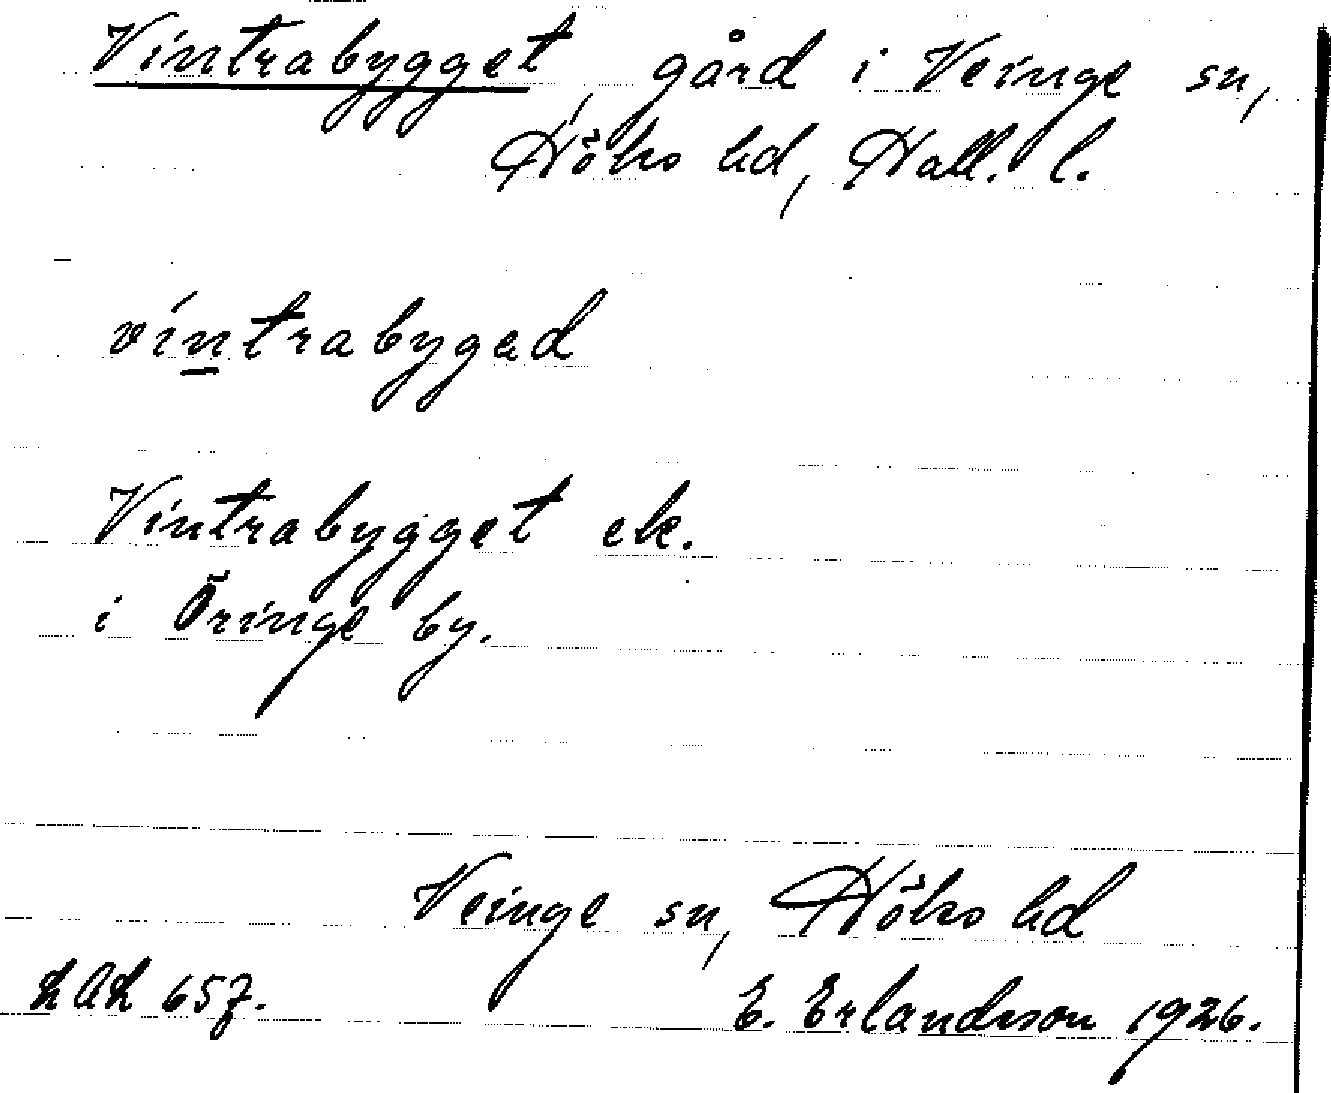 Vintrabygget gård i Veinge sn,
Höks hd, Hall. l.
víntrabygəd
Vintrabygget ek.
i Öringe by.
Veinge sn, Höks hd
LAL 657. E. Erlandsson 1926.